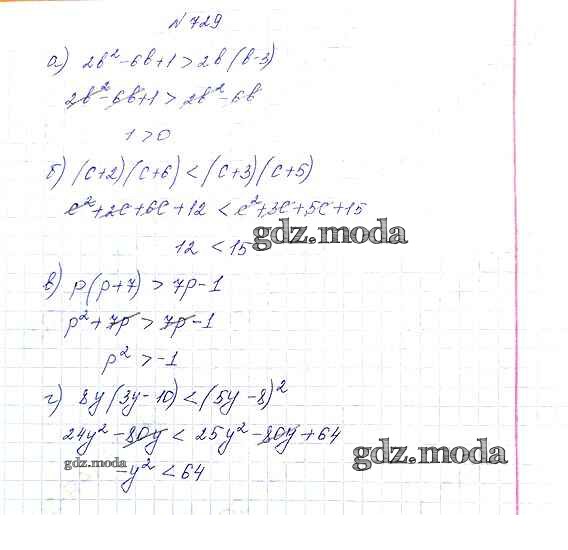 № 729
а) 2b² - 6b + 1 > 2b (b - 3)
2b² - 6b + 1 > 2b² - 6b
1 > 0
б) (c+2) (c+6) < (c+3) (c+5)
c² + 2c + 6c + 12 < c² + 3c + 5c + 15
12 < 15
gdz.moda
в) p (p+7) > 7p - 1
p² + 7p > 7p - 1
p² > -1
г) 8y (3y - 10) < (5y - 8)²
24y² - 80y < 25y² - 80y + 64
gdz.moda
-y² < 64
gdz.moda